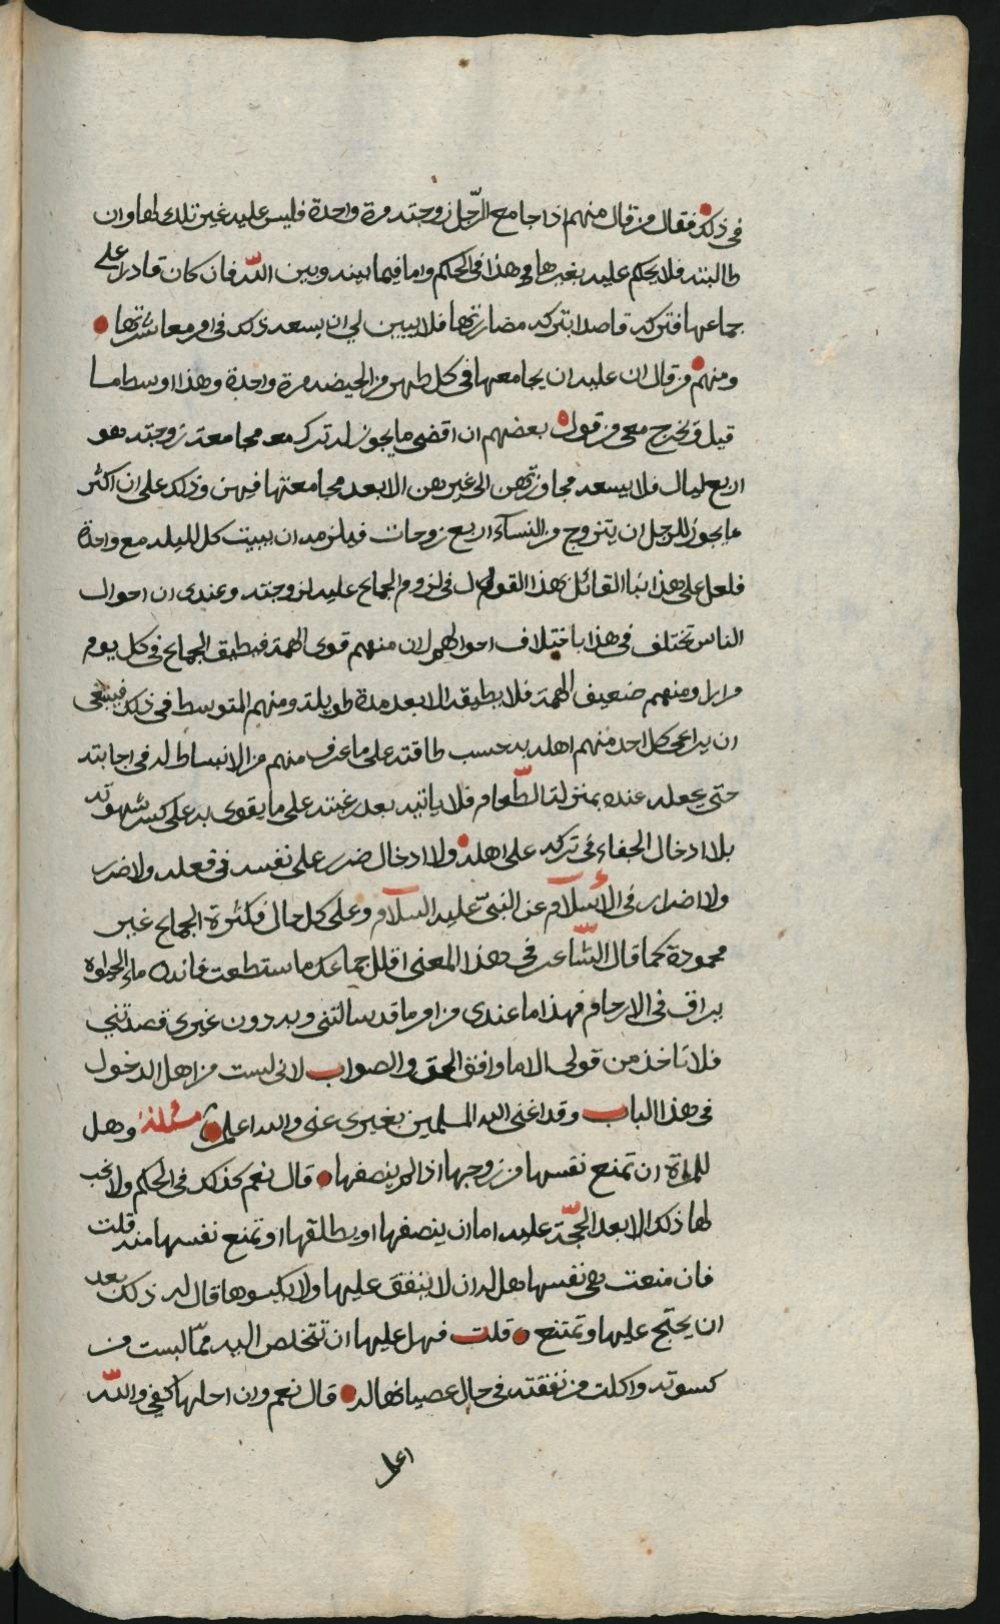 في ذلك فقال من قال منهم اذا جامع الرّجل زوجته مرة واحدة فليس عليه غير تلك لها وان
طالبته فلا يحكم عليه بغيرها في هذا في الحكم واما فيما بينه وبين اللّه فان كان قادرا على
جماعها فتركه قاصدا بتركه مضارتها فلا يبين لي ان يسعه ذلك في امر معاشرتها
ومنهم من قال ان عليه ان يجامعها في كل طهر من الحيضه مرة واحدة وهذا اوسط ما
قيل ويخرج معي من قول بعضهم ان اقصى ما يجوز له ترك معه مجامعة زوجته هو
اربع ليال فلا يسعه مجاوزتهن الى غيرهن الا بعد مجامعتها فيهن وذلك على ان اكثر
ما يجوز للرجل ان يتزوج من النسآء اربع زوجات فيلزمه ان يبيت كل ليله مع واحدة
فلعل على هذا بنا القائل بهذا القول في لزوم الجماع عليه لزوجته وعندي ان احوال
الناس تختلف في هذا باختلاف احوالهم لان منهم قوى الهمة فيطيق الجماع في كل يوم
مرارا ومنهم ضعيف الهمة فلا يطيقه الا بعد مدة طويلة ومنهم المتوسط في ذلك فينبغي
ان يراعى كل احد منهم اهله به حسب طاقته على ما عرف منهم من الانبساط له في اجابته
حتى يجعله عنده بمنزلة الطّعام فلا ياتيه بعد رغبته على ما يقوى به على كسر شهوته
بلا ادخال الجفاء في تركه على اهله ولا ادخال ضرر على نفسه في فعله ولا ضرر
ولا اضرار في الأسلآم عن النبيّ عليه السلآم وعلى كل حال فكثرة الجماع غير
محمودة كما قال الشّاعر في هذا المعنى اقلل جماعك ما ستطعت فانه ماء الحياوة
يراق في الارحام فهذا ما عندي من امر ما قد سالتني وبه دون غيري قصدتني
فلا تاخذ من قولى الا ما وافق الحق والصواب لاني لست من اهل الدخول
في هذا الباب وقد اغنى الله المسلمين بغيري عني والله اعلم مسئلة وهل
للمراة ان تمنع نفسها من زوجها اذا لم ينصفها قال نعم كذلك في الحكم ولا يجب
لها ذلك الا بعد الحجّة عليه اما ان ينصفها او يطلقها او تمنع نفسها منه قلت
فان منعت هي نفسها هل له ان لا ينفق عليها ولا يكسوها قال له ذلك بعد
ان يحتج عليها وتمتنع قلت فهل عليها ان تتخلص اليه ممّا لبست من
كسوته واكلت من نفقته في حال عصيانها له قال نعم وان احلها كفى واللّه
اعلم